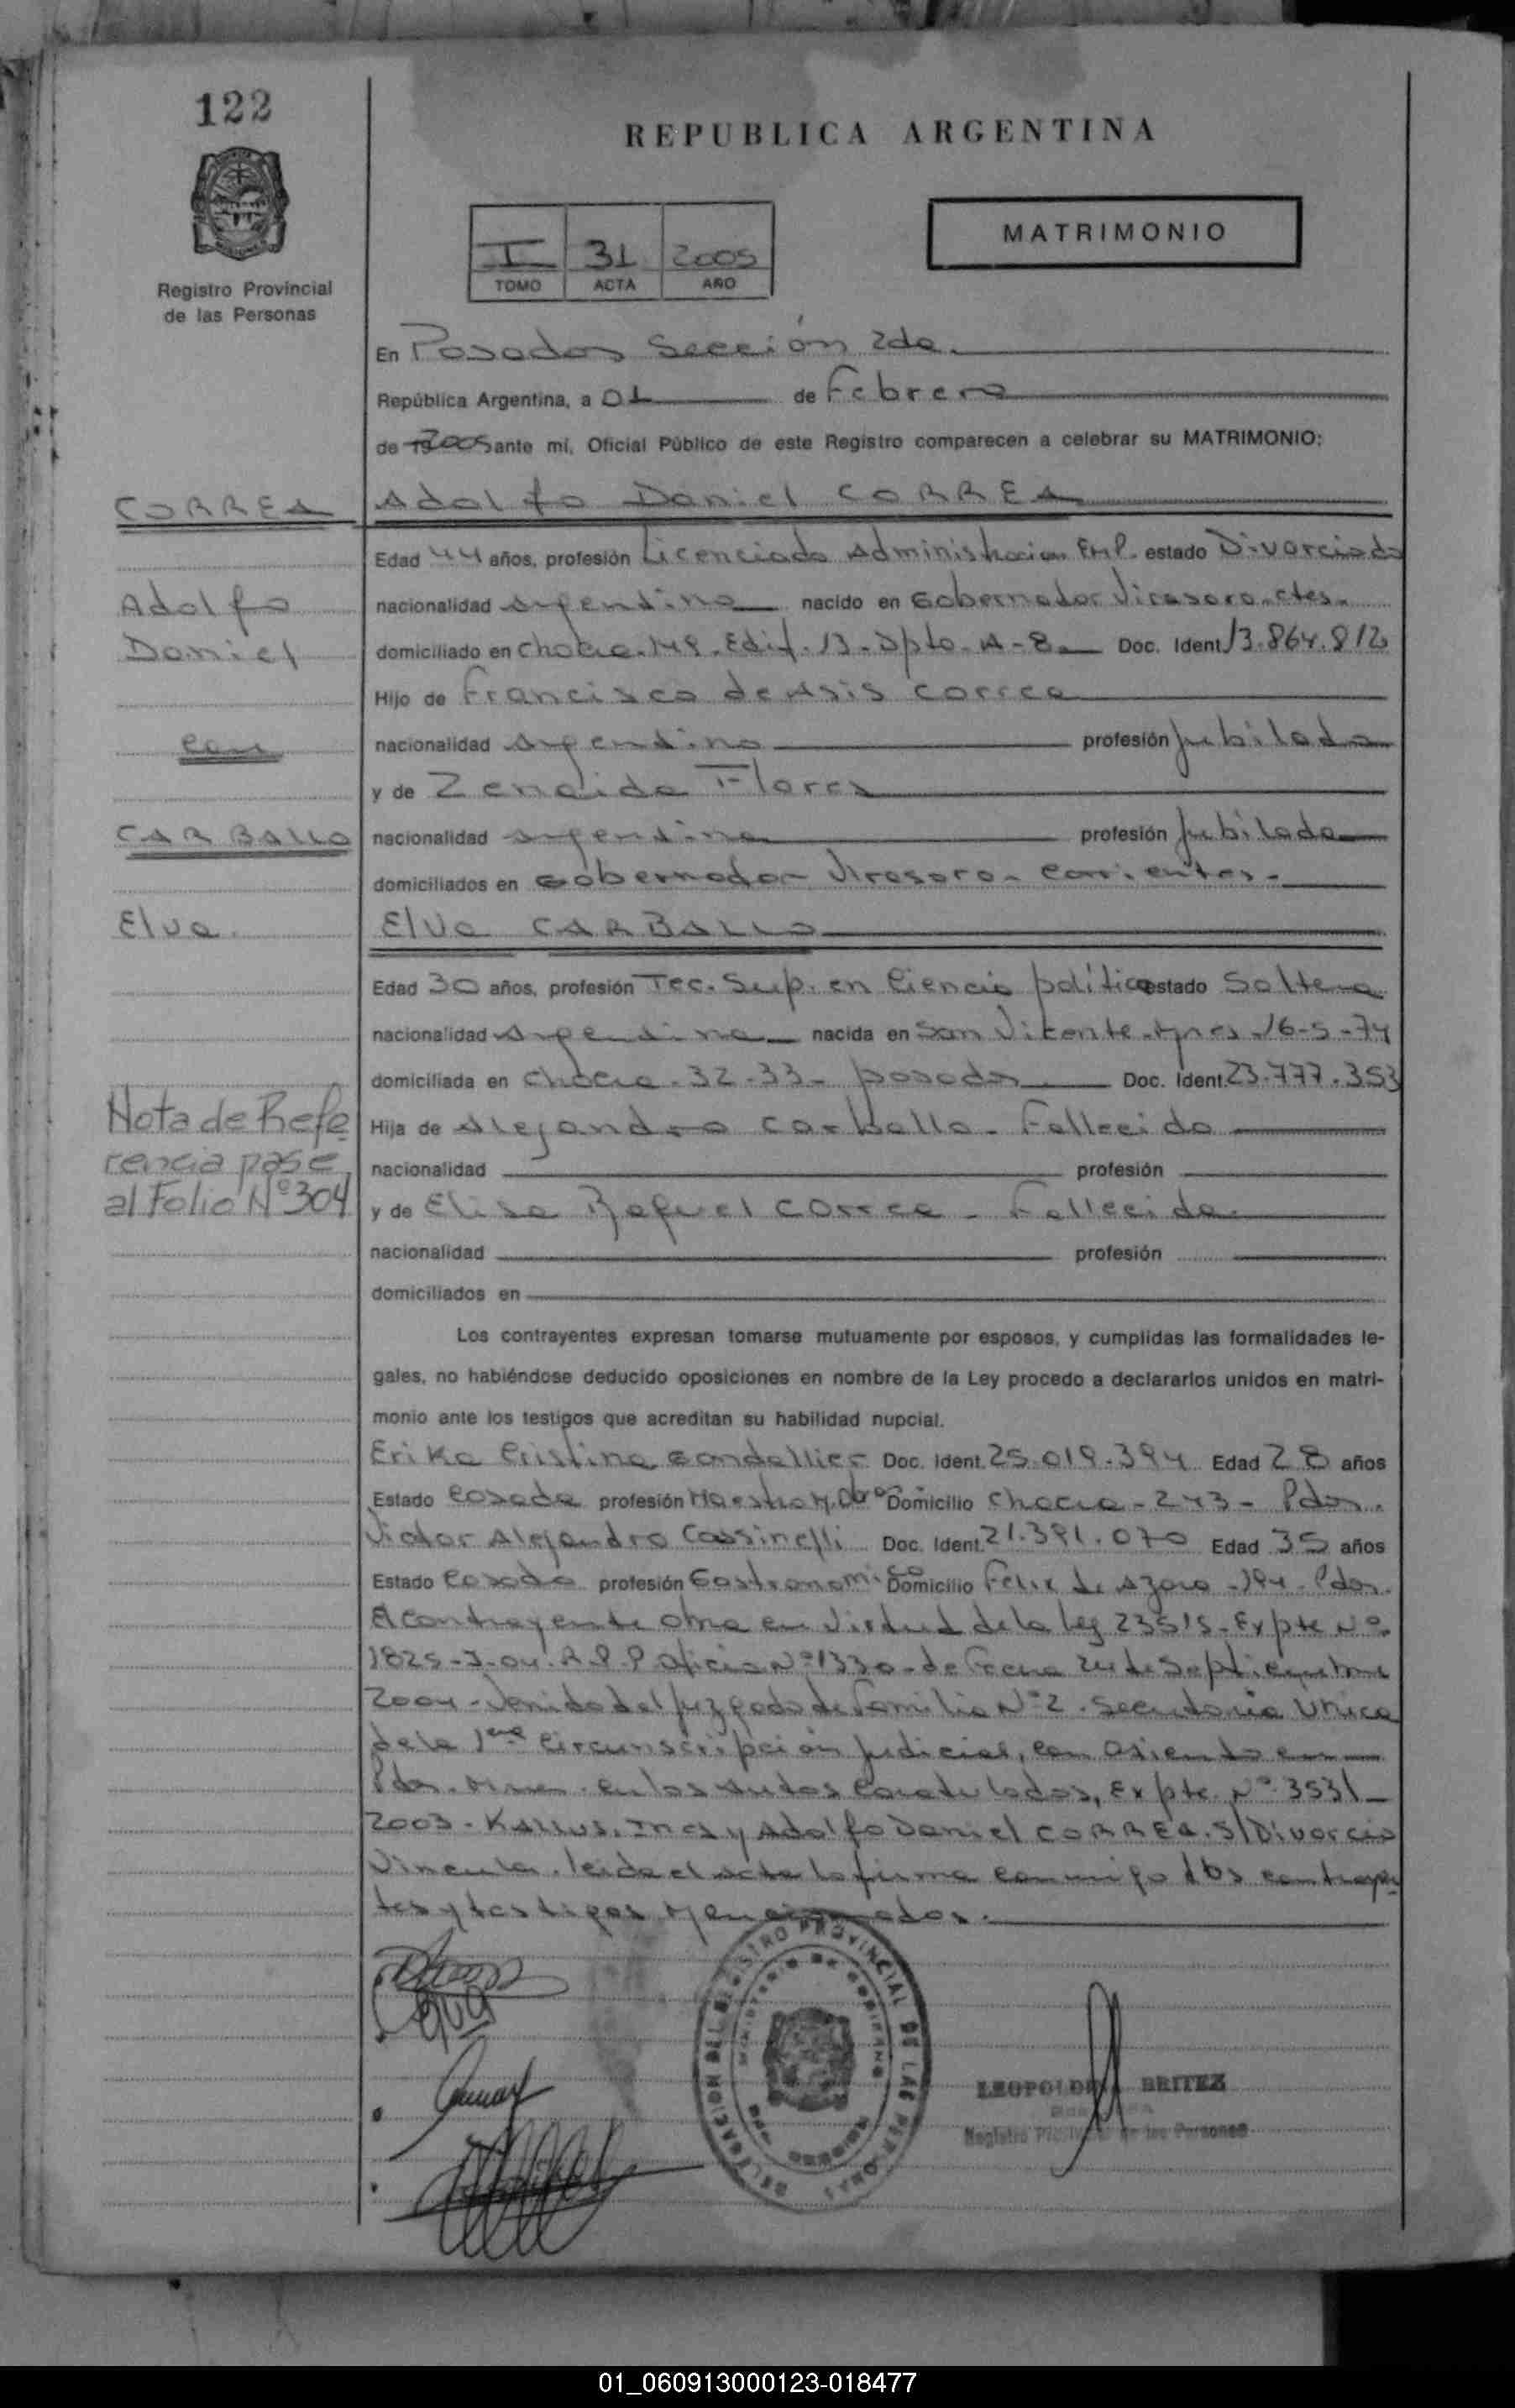 122
REPUBLICA ARGENTINA
MATRIMONIO
I 31 2005
TOMO ACTA AÑO
Registro Provincial
de las Personas
En Posadas Sección 2da.
República Argentina, a 01 de Febrero
de 2005 ante mí, Oficial Público de este Registro comparecen a celebrar su MATRIMONIO:
CORREA
Adolfo Daniel CORREA
Edad 44 años, profesión Licenciado Administracion Emp. estado Divorciado
Adolfo
nacionalidad argentina nacido en Gobernador Virasoro. ctes.
Daniel
domiciliado en Edif. 13 - Dpto. A - 8 Doc. Ident. 13.864.812
Hijo de Francisco de Asis Correa
con
nacionalidad argentino profesión jubilado
y de Zenaida Flores
CARBALLO
nacionalidad argentina profesión jubilada
domiciliados en Gobernador Virasoro - Corrientes.
Elva
Elva CARBALLO
Edad 30 años, profesión Tec. Sup. en Ciencia política estado Soltera
nacionalidad argentina nacida en San Vicente - Mnes - 16-5-74
domiciliada en 32-33 - posadas Doc. Ident. 23.777.353
Nota de Refe
rencia pase
al Folio Nº 304
Hija de Alejandro Carballo - Fallecido
nacionalidad profesión
y de Elisa Raquel Correa - Fallecida.
nacionalidad profesión
domiciliados en
Los contrayentes expresan tomarse mutuamente por esposos, y cumplidas las formalidades le-
gales, no habiéndose deducido oposiciones en nombre de la Ley procedo a declararlos unidos en matri-
monio ante los testigos que acreditan su habilidad nupcial.
Erika Cristina Gondallier Doc. Ident. 25.019.394 Edad 28 años
Estado Casada profesión Domicilio 243 - Pdas.
Victor Alejandro Cassinelli Doc. Ident. 21.391.070 Edad 35 años
Estado Casado profesión Gastronomico Domicilio Felix de Azara - 194 - Pdas.
El contrayente obra en virtud de la ley 23515 - Expte Nº
1825-J-04. R.P.P oficio Nº 1330 - de fecha 24 de Septiembre
2004 - venido del juzgado de Familia Nº 2. Secretaria Unica
de la 1era Circunscripción judicial, con asiento en
Pdas. Mnes. en los autos Caratulados, Expte. Nº 3531
2003 - KALLUS, Ines y Adolfo Daniel CORREA. S/Divorcio
Vincular. leida el acta la firma conmigo los contrayen
tes y testigos mencionados.
DELEGACION DEL REGISTRO PROVINCIAL DE LAS PERSONAS
MINISTERIO DE GOBIERNO
BRITEZ
Registro Provincial de las Personas
01_060913000123-018477